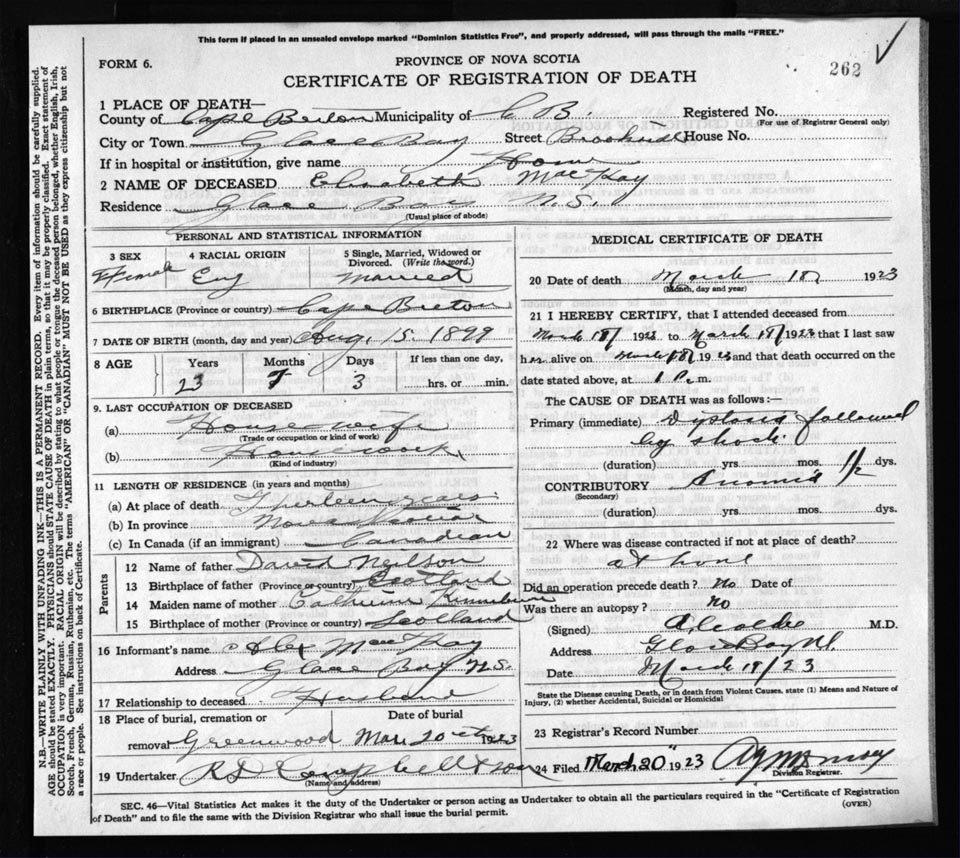 This form if placed in an unsealed envelope marked "Dominion Statistics Free", and properly addressed, will pass through the mails "FREE."
FORM 6.
PROVINCE OF NOVA SCOTIA
262
CERTIFICATE OF REGISTRATION OF DEATH
1 PLACE OF DEATH—
County of Cape Breton Municipality of C B. Registered No.
(For use of Registrar General only)
City or Town Glace Bay Street Brookside House No.
If in hospital or institution, give name Home
2 NAME OF DECEASED Elizabeth MacKay
Residence Glace Bay N.S.
(Usual place of abode)
PERSONAL AND STATISTICAL INFORMATION
3 SEX 4 RACIAL ORIGIN 5 Single, Married, Widowed or Divorced. (Write the word.)
Female Eng Married
6 BIRTHPLACE (Province or country) Cape Breton
7 DATE OF BIRTH (month, day and year) Aug. 15. 1899
8 AGE Years Months Days If less than one day,
23 7 3 hrs. or min.
9. LAST OCCUPATION OF DECEASED
(a) House-wife
(Trade or occupation or kind of work)
(b) Housework
(Kind of industry)
11 LENGTH OF RESIDENCE (in years and months)
(a) At place of death years
(b) In province Nova Scotia
(c) In Canada (if an immigrant) Canadian
Parents
12 Name of father David Neilson
13 Birthplace of father (Province or country) Scotland
14 Maiden name of mother Catherine
15 Birthplace of mother (Province or country) Scotland
16 Informant's name Alex MacKay
Address Glace Bay N.S.
17 Relationship to deceased Husband
18 Place of burial, cremation or Date of burial
removal Greenwood Mar. 20 1923
19 Undertaker Campbell & Son
(Name and address)
MEDICAL CERTIFICATE OF DEATH
20 Date of death March 18, 1923
(Month, day and year)
21 I HEREBY CERTIFY, that I attended deceased from
March 18/ 1923 to March 18/ 1923 that I last saw
her alive on March 18/ 1923 and that death occurred on the
date stated above, at 1 P. m.
The CAUSE OF DEATH was as follows:—
Primary (immediate) followed
by shock
(duration) yrs. mos. 1/2 dys.
CONTRIBUTORY
(Secondary)
(duration) yrs. mos. dys.
22 Where was disease contracted if not at place of death?
at home
Did an operation precede death? No Date of
Was there an autopsy? No
(Signed) M.D.
Address Glace Bay N.S.
Date March 18/23
State the Disease causing Death, or in death from Violent Causes, state (1) Means and Nature of Injury, (2) whether Accidental, Suicidal or Homicidal
23 Registrar's Record Number
24 Filed March 20" 1923
Division Registrar.
SEC. 46—Vital Statistics Act makes it the duty of the Undertaker or person acting as Undertaker to obtain all the particulars required in the "Certificate of Registration
of Death" and to file the same with the Division Registrar who shall issue the burial permit.
(OVER)
N.B.—WRITE PLAINLY WITH UNFADING INK—THIS IS A PERMANENT RECORD. Every item of information should be carefully supplied.
AGE should be stated EXACTLY. PHYSICIANS should STATE CAUSE OF DEATH in plain terms, so that it may be properly classified. Exact statement of
OCCUPATION is very important. RACIAL ORIGIN will be described by stating to what people or tongue the deceased person belonged, whether English, Irish,
Scotch, French, German, Russian, Ruthenian, etc. The terms "AMERICAN" OR "CANADIAN" MUST NOT BE USED as they express citizenship but not
a race or people. See instructions on back of Certificate.